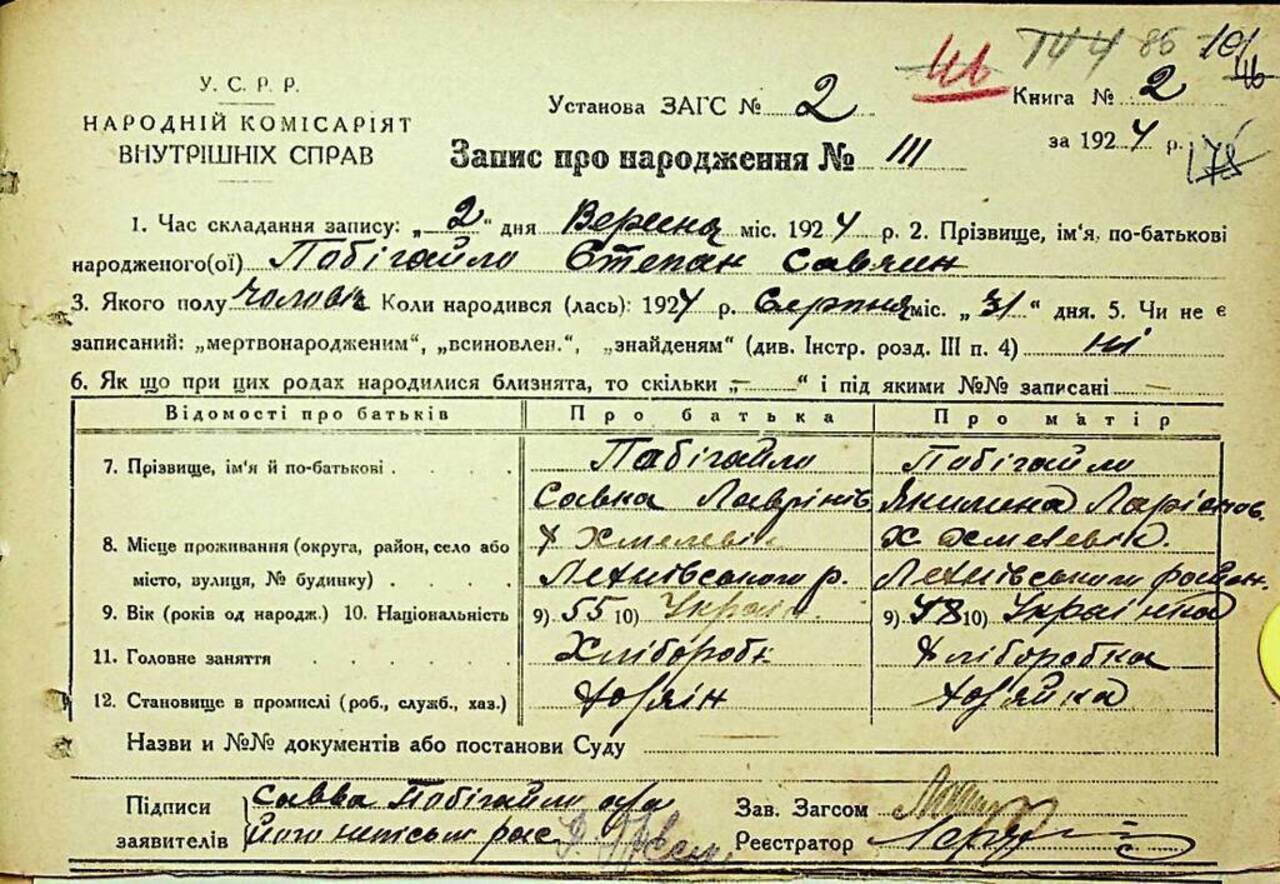 46 144 86 101
46
У. С. Р. Р.
НАРОДНІЙ КОМІСАРІЯТ
ВНУТРІШНІХ СПРАВ
Установа ЗАГС № 2
Книга № 2
за 1924 р.
Запис про народження № 111
1. Час складання запису: „2“ дня Вересня міс. 1924 р. 2. Прізвище, ім'я, по-батькові
народженого(ої) Побігайло Степан Савин
3. Якого полу чолов. Коли народився (лась): 1924 р. Серпня міс. „31“ дня. 5. Чи не є
записаний: „мертвонародженим“, „всиновлен.“, „знайденям“ (див. Інстр. розд. III п. 4) ні
6. Як що при цих родах народилися близнята, то скільки „—“ і під якими №№ записані —
Відомості про батьків Про батька Про матір
7. Прізвище, ім'я й по-батькові Побігайло Побігайло
Савка Лаврінів Якилина Ларіонов.
8. Місце проживання (округа, район, село або Х Хмелевік Х Хмелевік.
місто, вулиця, № будинку) району.
9. Вік (років од народж.) 10. Національність 9) 55 10) Україн. 9) 48 10) Українка
11. Головне заняття Хлібороб Хліборобка
12. Становище в промислі (роб., служб., хаз.) Хазяін Хазяйка
Назви и №№ документів або постанови Суду
Підписи Савва Побігайло а за Зав. Загсом
заявителів його неписьм рос Реєстратор